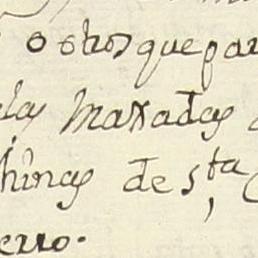 otros que par
las Maxadas
chinas de Sta
erro.